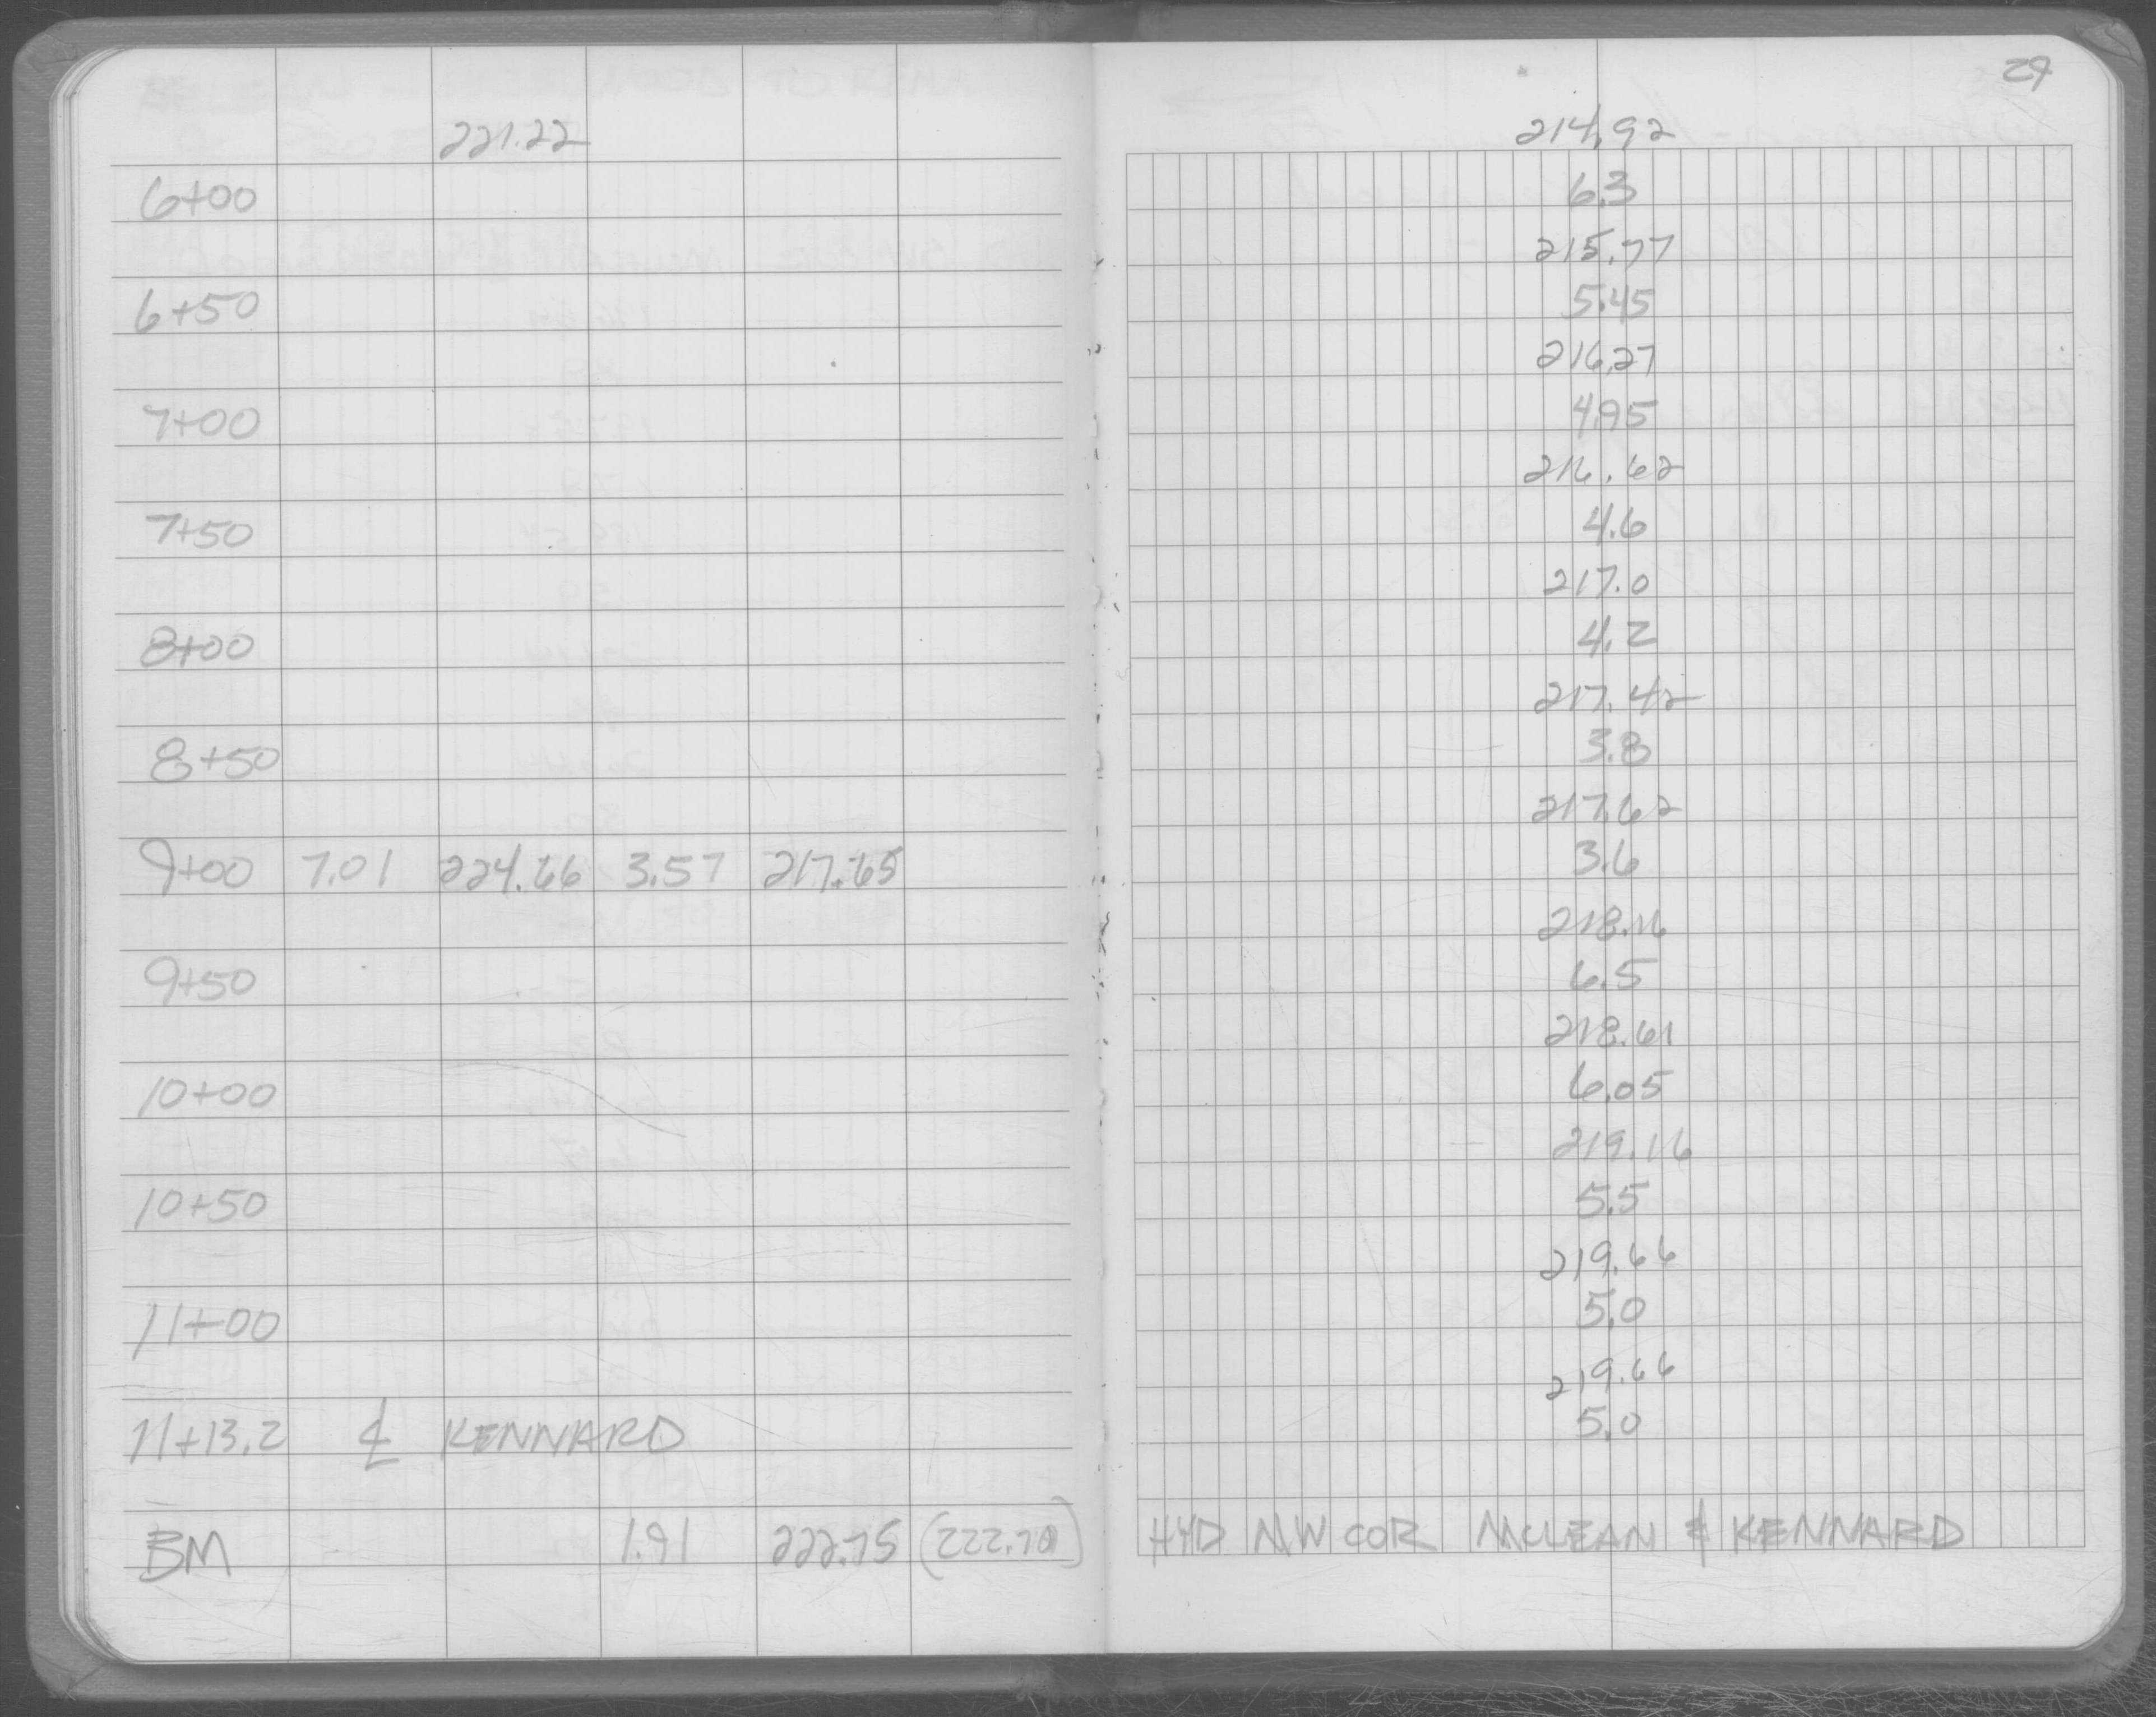 29
221.22 214.92
6+00 6.3
215.77
6+50 5.45
216.27
7+00 4.95
216.62
7+50 4.6
217.0
8+00 4.2
217.42
8+50 3.8
217.62
9+00 7.01 224.66 3.57 217.65 3.6
218.16
9+50 6.5
218.61
10+00 6.05
219.16
10+50 5.5
219.66
11+00 5.0
219.66
11+13.2 ℄ KENNARD 5.0
BM 1.91 222.75 HYD NW COR McLEAN & KENNARD